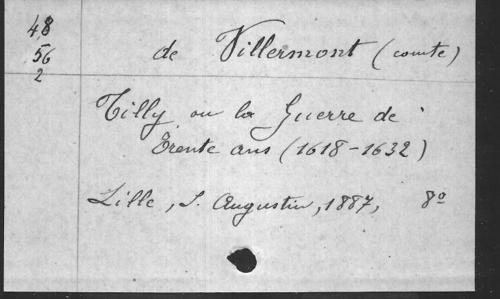 48
56
2
de Villermont (comte)
Tilly ou la Guerre de
Trente ans (1618-1632)
Lille, S. Augustin, 1887, 8º